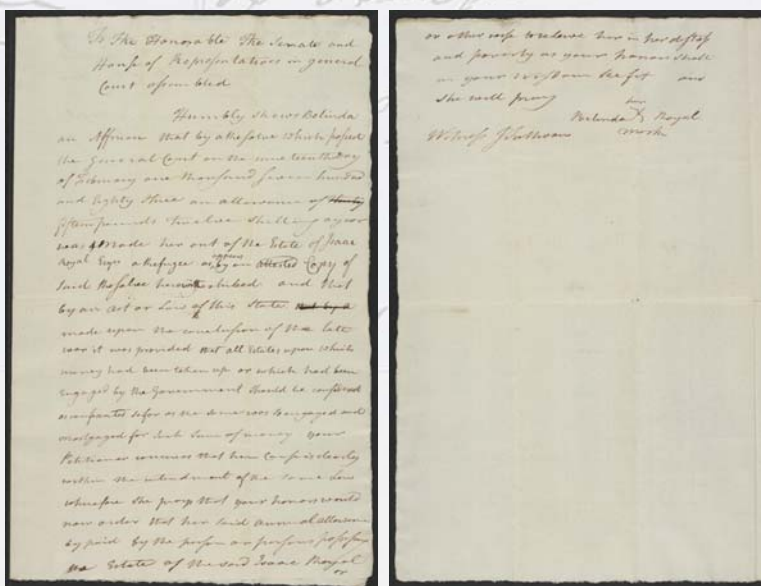 To The Honorable The Senate and
House of Representatives in general
Court assembled
Humbly shews Belinda
an Affrican that by a Resolve which passed
the General Court on the nineteenth Day
of February one thousand seven hundred
and Eighty three an allowance of
fifteen pounds twelve shilling a year
was made her out of the Estate of Isaac
Royal Esqr a Refugee as appears by an attested Copy of
said Resolve herewith and that
by an act or Law of this State
made upon the conclusion of the late
war it was provided that all Estates upon which
money had been taken up or which had been
Engaged by the Government should be considered
as so far as the same was so engaged and
mortgaged for such sum of money your
Petitioner conceives that her Case is clearly
within the intendment of the same Law
wherefore she prays that your honors would
now order that her said annual allowance
by paid by the person or persons possessing
the Estate of the said Isaac Royal
or
or otherwise to releave her in her distress
and poverty as your honors shall
in your wisdom see fit and
she will pray
her
Belinda X Royal
mark
Witness J Sullivan